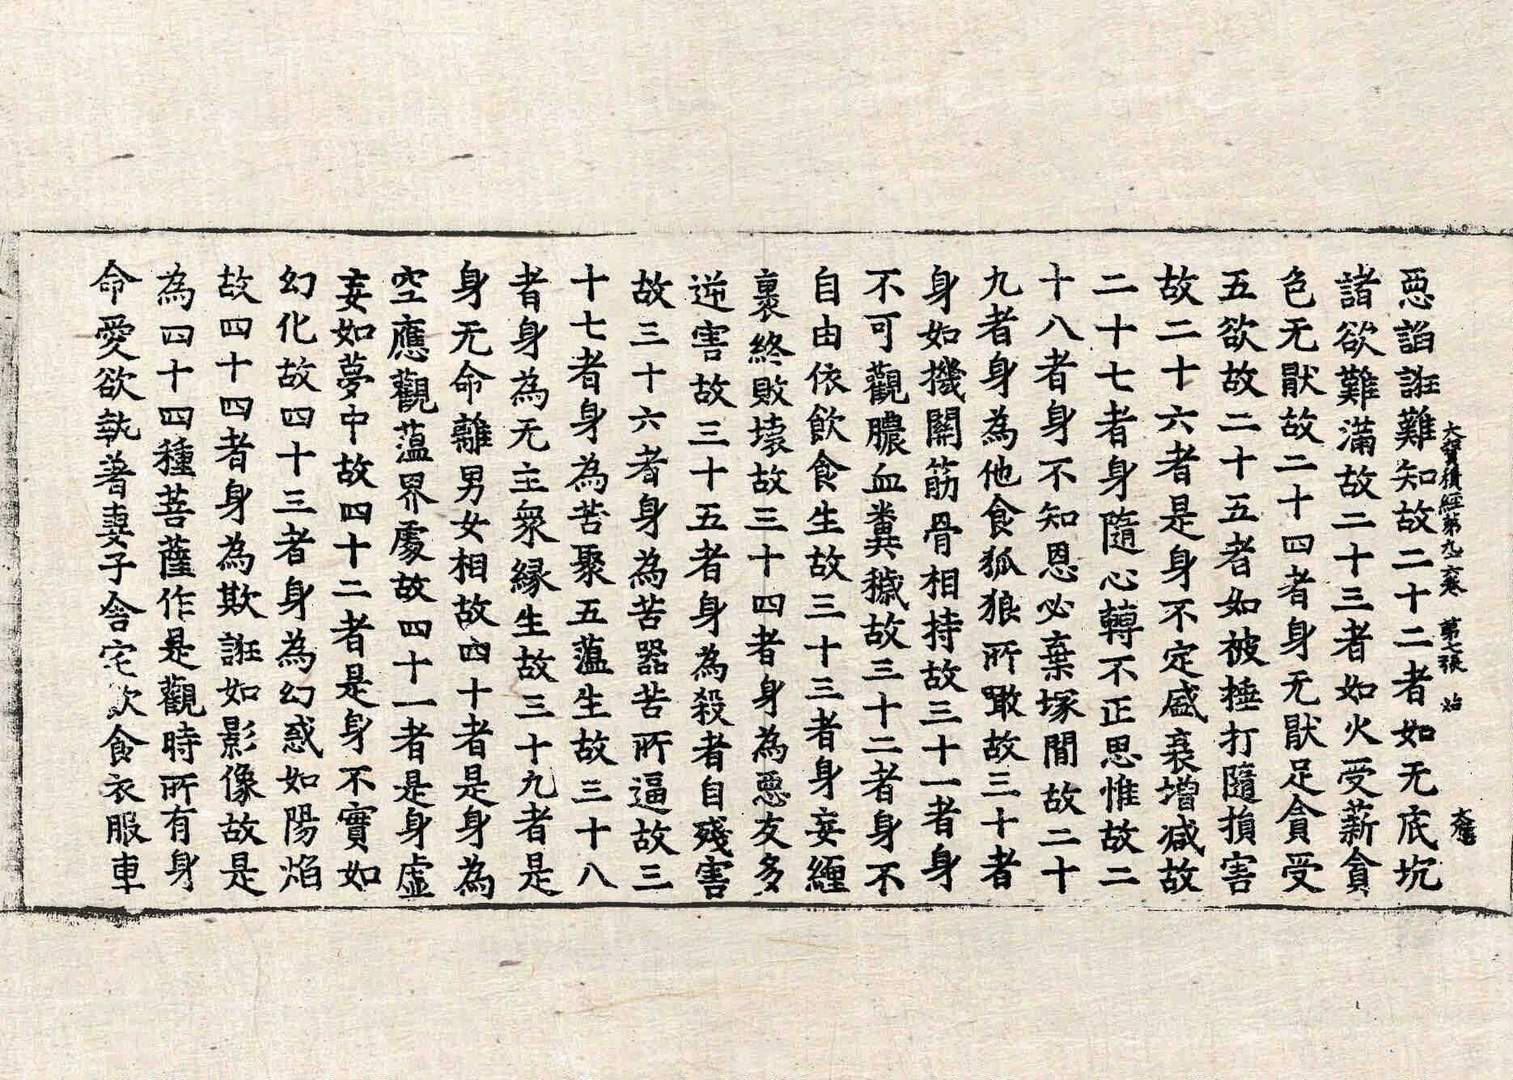 大寶積經第九六卷 第七張 始
惡諂誑難知故二十二者如无底坑
諸欲難滿故二十三者如火受薪貪
色无猒故二十四者身无猒足貪受
五欲故二十五者如被捶打隨損害
故二十六者是身不定盛衰增減故
二十七者身隨心轉不正思惟故二
十八者身不知恩必棄塚閒故二十
九者身為他食狐狼所噉故三十者
身如機關筋骨相持故三十一者身
不可觀膿血糞穢故三十二者身不
自由依飲食生故三十三者身妄纏
裹終敗壞故三十四者身為惡友多
逆害故三十五者身為殺者自殘害
故三十六者身為苦器苦所逼故三
十七者身為苦聚五蘊生故三十八
者身為无主衆緣生故三十九者是
身无命離男女相故四十者是身為
空應觀蘊界處故四十一者是身虛
妄如夢中故四十二者是身不實如
幻化故四十三者身為幻惑如陽焰
故四十四者身為欺誑如影像故是
為四十四種菩薩作是觀時所有身
命愛欲執著妻子舍宅飲食衣服車